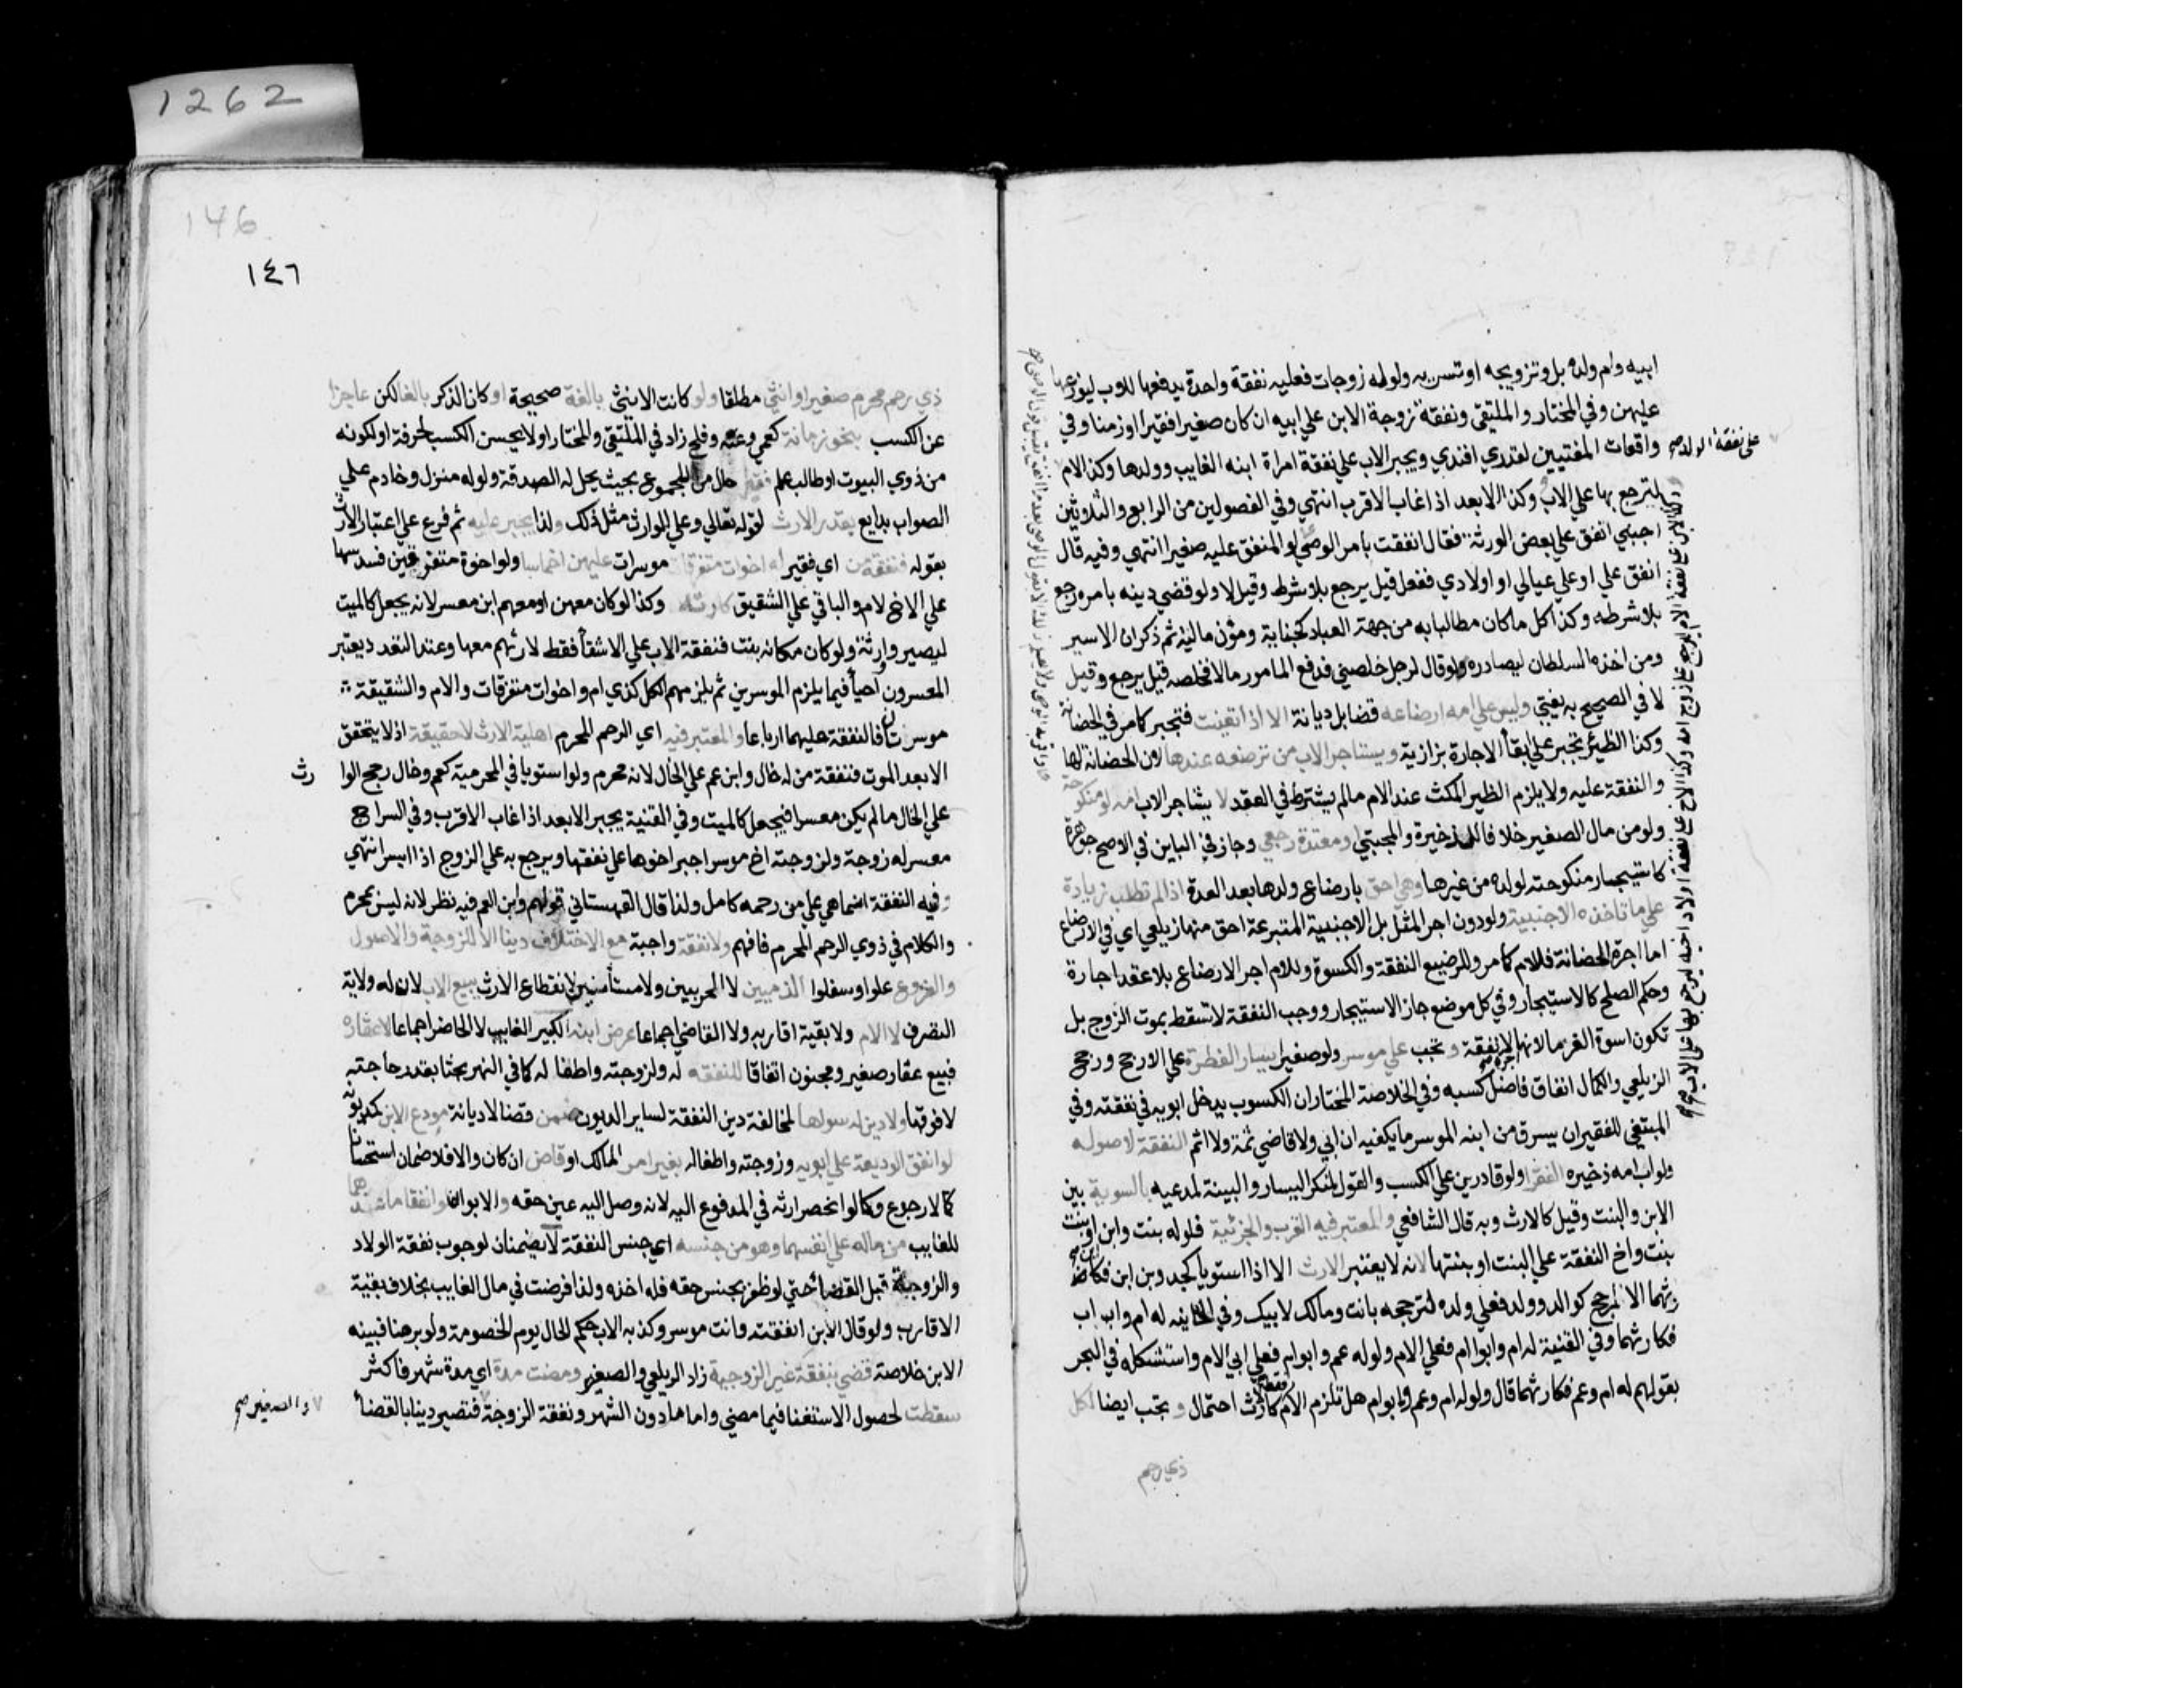 ابيه وام ولده بل وتزويجه او تسريه ولو له زوجات فعليه نفقة واحدة يدفعها للاب ليوزعها
عليهن وفي المختار والملتقى ونفقة زوجة الابن علي ابيه ان كان صغيرا فقيرا او زمنا وفي
واقعات المفتيين لقدري افندي ويجبر الاب علي نفقة امراة ابنه الغايب وولدها وكذا الام
علي نفقة الولد صح
لترجع بها علي الاب وكذا الابعد اذا غاب الاقرب انتهي وفي الفصولين من الرابع والثلاثين
اجنبي انفق علي بعض الورثة فقال انفقت بامر الوصي لو المنفق عليه صغيرا انتهي وفيه قال
انفق علي او علي عيالي او اولادي ففعل قيل يرجع بلا شرط وقيل لا ولو قضي دينه بامره رجع
بلا شرطه وكذا كل ما كان مطالبا به من جهة العباد كجناية ومؤن مالية ثم ذكر ان الاسير
ومن اخذه السلطان ليصادره ولو قال لرجل خلصني فدفع المامور مالا فخلصه قيل يرجع وقيل
لا في الصحيح به يفتي وليس علي امه ارضاعه قضا بل ديانة الا اذا تعينت فتجبر كما مر في الحضانة
وكذا الظئر تجبر علي ابقأ الاجارة بزازية ويستاجر الاب من ترضعه عندها لان الحضانة لها
والنفقة عليه ولا يلزم الظير المكث عند الام مالم يشترط في العقد لا يستاجر الاب امه لو منكوحة
ولو من مال الصغير خلافا للذخيرة والمجتبي او معتدة رجعي وجاز في الباين في الاصح جوهرة
كاستيجار منكوحته لولده من غيرها وهي احق بارضاع ولدها بعد العدة اذا لم تطلب زيادة
علي ما تاخذه الاجنبية ولو دون اجر المثل بل الاجنبية المتبرعة احق منها زيلعي اي في الارضاع
اما اجرة الحضانة فللام كما مر وللرضيع النفقة والكسوة وللام اجر الارضاع بلا عقد اجارة
وحكم الصلح كالاستيجار وفي كل موضع جاز الاستيجار ووجب النفقة لا تسقط بموت الزوج بل
تكون اسوة الغرما لانها اجرة لا نفقة وتجب علي موسر ولو صغيرا يسار الفطرة علي الارجح ورجح
الزيلعي والكمال انفاق فاضل كسبه وفي الخلاصة المختار ان الكسوب يدخل ابويه في نفقته وفي
المبتغي للفقير ان يسرق من ابنه الموسر ما يكفيه ان ابي ولا قاضي ثمة ولا اثم النفقة لاصوله
ولو اب امه ذخيره الفقرا ولو قادرين علي الكسب والقول لمنكر اليسار والبينة لمدعيه بالسوية بين
الابن والبنت وقيل كالارث وبه قال الشافعي والمعتبر فيه القرب والجزئية فلو له بنت وابن ابن او بنت
بنت واخ النفقة علي البنت او بنتها لانه لا يعتبر الارث الا اذا استويا كجد وبن ابن فكا
رثهما الا لمرجح كوالد وولد فعلي ولده لترجحه بانت ومالك لابيك وفي الخانيه له ام واب اب
فكارثهما وفي القنية له ام وابو ام فعلي الام ولو له عم وابو ام فعلي ابي الام واستشكله في البحر
بقولهم له ام وعم فكارثهما قال ولو له ام وعم وابو ام هل تلزم الام فقط ام كالارث احتمال وتجب ايضا لكل
ذي رحم
1262
146
١٤٦
ذي رحم محرم صغير او انثي مطلقا ولو كانت الانثي بالغة صحيحة او كان الذكر بالغا لكن عاجزا
عن الكسب بنحو زمانة كعمي وعته وفلج زاد في الملتقي والمختار او لا يحسن الكسب لحرفة او لكونه
من ذوي البيوت او طالب علم فقيرا حال من المجموع بحيث يحل له الصدقة ولو له منزل وخادم علي
الصواب بدايع بقدر الارث لقوله تعالي وعلي الوارث مثل ذلك ولذا يجبر عليه ثم فرع علي اعتبار الارث
بقوله فنفقة من اي فقير له اخوات متفرقات موسرات عليهن اخماسا ولو اخوة متفرقين فسدسها
علي الاخ لام والباقي علي الشقيق كارثه وكذا لو كان معهن او معهم ابن معسر لانه يجعل كالميت
ليصيروا ورثة ولو كان مكانه بنت فنفقة الاب علي الاشقأ فقط لارثهم معها وعند التعدد يعتبر
المعسرون احيأ فيما يلزم الموسرين ثم يلزمهم الكل كذي ام واخوات متفرقات والام والشقيقة
موسرتان فالنفقة عليهما ارباعا والمعتبر فيه اي الرحم المحرم اهلية الارث لا حقيقة اذ لا يتحقق
الا بعد الموت فنفقة من له خال وابن عم علي الخال لانه محرم ولو استويا في المحرمية كعم وخال رجح الوا
رث
علي الخال مالم يكن معسرا فيجعل كالميت وفي القنية يجبر الابعد اذا غاب الاقرب وفي السراج
معسر له زوجة ولزوجته اخ موسر اجبر اخوها علي نفقتها ويرجع به علي الزوج اذا ايسر انتهي
وفيه النفقة انما هي علي من رحمه كامل ولذا قال القهستاني قولهم وابن العم فيه نظر لانه ليس بمحرم
والكلام في ذوي الرحم المحرم فافهم ولا نفقة واجبة مع الاختلاف دينا الا للزوجة والاصول
والفروع علوا او سفلوا الذميين لا الحربيين ولا مستأمنين لانقطاع الارث يبيع الاب لان له ولاية
التصرف لا الام ولا بقية اقاربه ولا القاضي اجماعا عرض ابنه الكبير الغايب لا الحاضر اجماعا لا عقاره
فيبيع عقار صغير ومجنون اتفاقا للنفقه له ولزوجته واطفاله كما في النهر بحثا بقدر حاجته
لا فوقها ولا دين له سواها لمخالفة دين النفقة لساير الديون ضمن قضا لا ديانة مودع الابن كمديونه
لو انفق الوديعة علي ابويه وزوجته واطفاله بغير امر المالك او قاض ان كان والا فلا ضمان استحسانا
كما لا رجوع وكما لو انحصر ارثه في المدفوع اليه لانه وصل اليه عين حقه والابوان لو انفقا ما عندهما
للغايب من ماله علي انفسهما وهو من جنسه اي جنس النفقة لا يضمنان لوجوب نفقة الولاد
والزوجية قبل القضأ حتي لو ظفر بجنس حقه فله اخذه ولذا فرضت في مال الغايب بخلاف بقية
الاقارب ولو قال الابن انفقته وانت موسر وكذبه الاب حكم الحال يوم الخصومة ولو برهنا فبينة
الابن خلاصة قضي بنفقة غير الزوجية زاد الزيلعي والصغير ومضت مدة اي مدة شهر فاكثر
سقطت لحصول الاستغنا فيما مضي واما ما دون الشهر ونفقة الزوجة فتصير دينا بالقضأ
والصغير صح